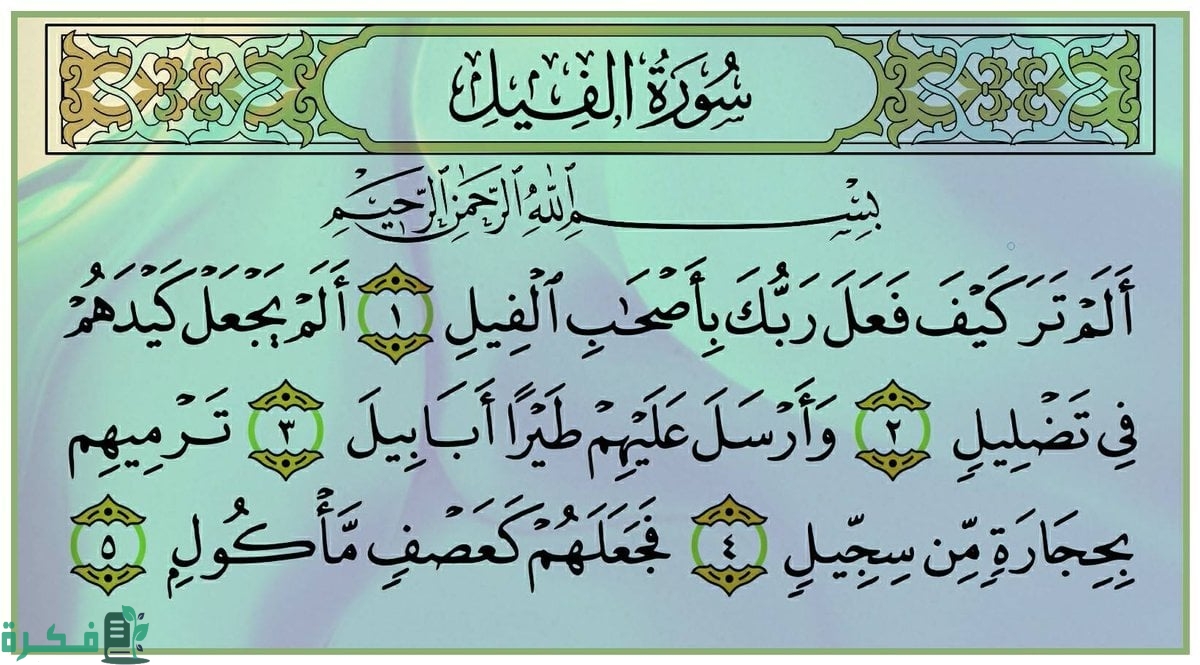 سُورَةُ الفِيلِ
بِسْمِ اللَّهِ الرَّحْمَٰنِ الرَّحِيمِ
أَلَمْ تَرَ كَيْفَ فَعَلَ رَبُّكَ بِأَصْحَٰبِ ٱلْفِيلِ ١ أَلَمْ يَجْعَلْ كَيْدَهُمْ
فِى تَضْلِيلٍ ٢ وَأَرْسَلَ عَلَيْهِمْ طَيْرًا أَبَابِيلَ ٣ تَرْمِيهِم
بِحِجَارَةٍ مِّن سِجِّيلٍ ٤ فَجَعَلَهُمْ كَعَصْفٍ مَّأْكُولٍ ٥
فكرة